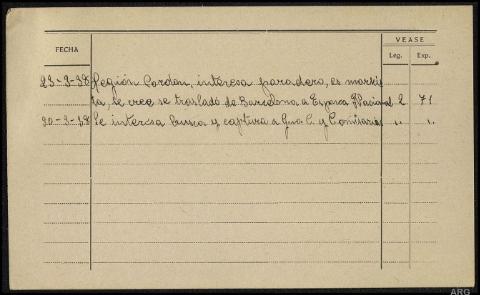 VEASE
FECHA
Leg. Exp.
23-3-38 Región Cordón, interesa paradero, es marxis
ta, se cree se trasladó de Barcelona a España Nacional 2 71
30-3-38 Se interesa busca y captura a Gua C. y Comisarias " "
ARG